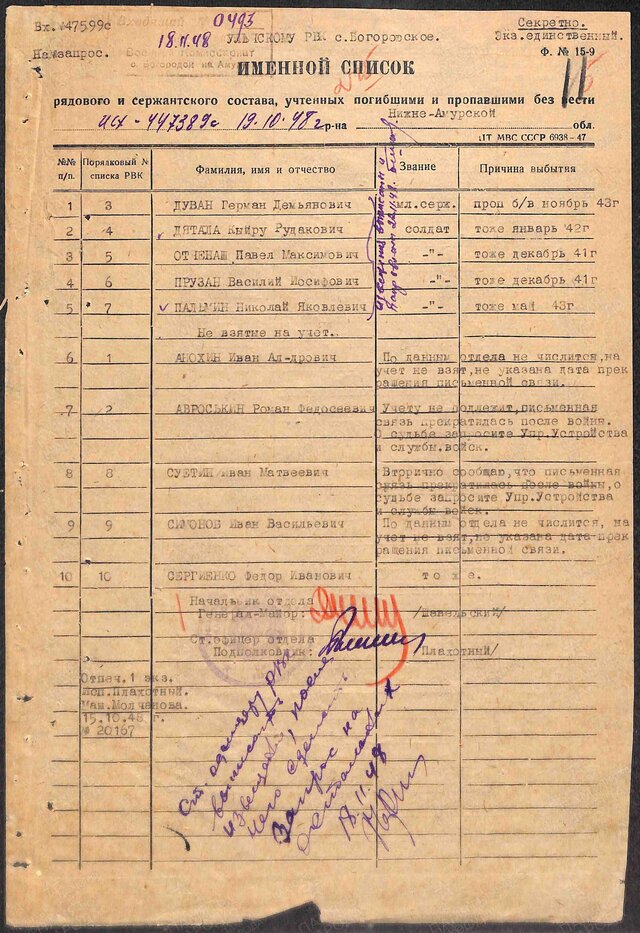 0493
Вх.№47599с
Секретно.
18.11.48
УЛЬЧСКОМУ РВК с.Богородское.
Экз.единственный
На запрос.
Ф. № 15-9
ИМЕННОЙ СПИСОК
11
рядового и сержантского состава, учтенных погибшими и пропавшими без вести
исх-447389с 19.10.48г р-на Нижне-Амурской обл.
ЦТ МВС СССР 6938-47
№№ п/п. Порядковый № списка РВК Фамилия, имя и отчество Звание Причина выбытия
1 3 ДУВАН Герман Демьянович мл.серж. проп б/в ноябрь 43г
2 4 ДЯТАЛА Кыйру Рудакович солдат тоже январь 42г
3 5 ОТЧЕНАШ Павел Максимович -"- тоже декабрь 41г
4 6 ПРУЗАН Василий Иосифович -"- тоже декабрь 41г
5 7 ПАЛЬМИН Николай Яковлевич -"- тоже май 43г
Не взятые на учет.
6 1 АНОХИН Иван Ал-дрович По данным отдела не числится,на
учет не взят,не указана дата прек
ращения письменной связи.
7 2 АВРОСЬКИН Роман Федосеевич Учету не подлежит,письменная
связь прекратилась после войны.
О судьбе запросите Упр.Устройства
и службы.войск.
8 8 СУЕТИН Иван Матвеевич Вторично сообщаю,что письменная
связь прекратилась после войны,о
судьбе запросите Упр.Устройства
и службы.войск.
9 9 СИМОНОВ Иван Васильевич По данным отдела не числится, на
учет не взят,не указана дата прек
ращения письменной связи.
10 10 СЕРГИЕНКО Федор Иванович тоже.
Начальник отдела
Генерал-Майор: /Шавельский/
Ст.офицер отдела
Подполковник: /Плахотный/
Отпеч.1 экз.
Исп.Плахотный.
Маш.Молчанова.
15.10.48 г.
№ 20167
Ст. офицеру РВК
выписать
извещения, после
чего сделать
Запрос на
остальных
18.11.48